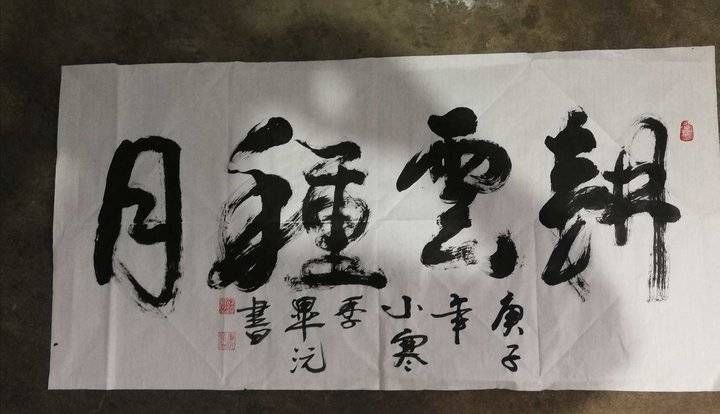 耕雲種月
庚子
年
小寒
季
畢沅
書